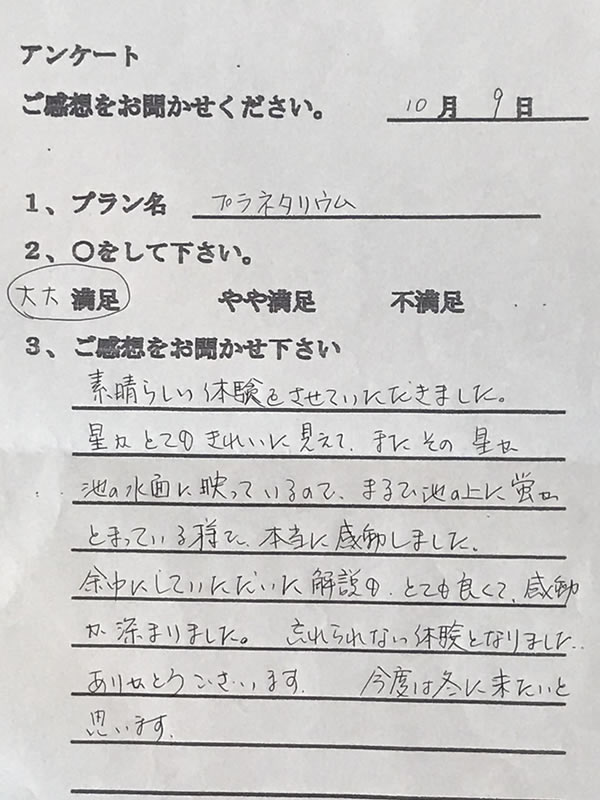 アンケート
ご感想をお聞かせください。 10月 9日
1、プラン名 プラネタリウム
2、〇をして下さい。
大大 満足 やや満足 不満足
3、ご感想をお聞かせ下さい
素晴らしい体験をさせていただきました。
星がとてもきれいに見えて、またその星が
池の水面に映っているので、まるで池の上に蛍が
とまっている様で、本当に感動しました。
途中にしていただいた解説も、とても良くて、感動
が深まりました。 忘れられない体験となりました。
ありがとうございます。 今度は冬に来たいと
思います。